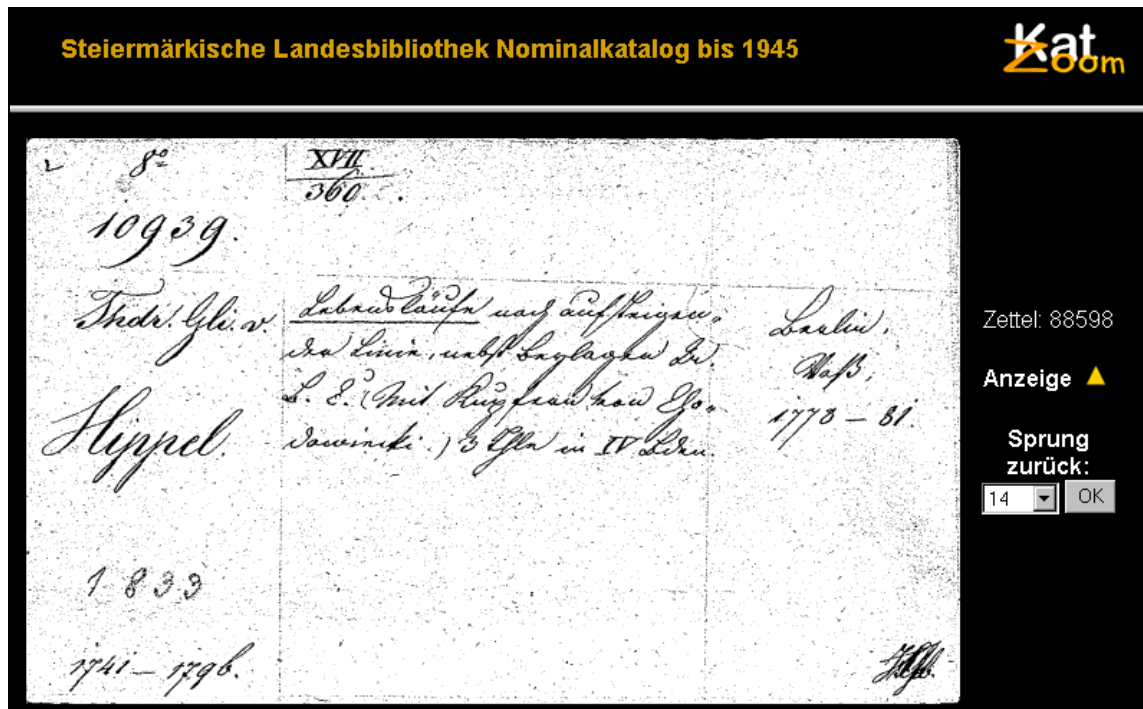 Steiermärkische Landesbibliothek Nominalkatalog bis 1945
KatZoom
8º
XVII
360
10939.
Thdr. Gli. v.
Hippel.
Lebensläufe nach aufsteigen-
der Linie, nebst Beylagen
(Mit Kupfern von Cho-
dowiecki.) 3 Thle in IV Bden.
Berlin,
Voß,
1778 – 81.
1833
1741 – 1796.
Zettel: 88598
Anzeige
Sprung
zurück:
14 OK